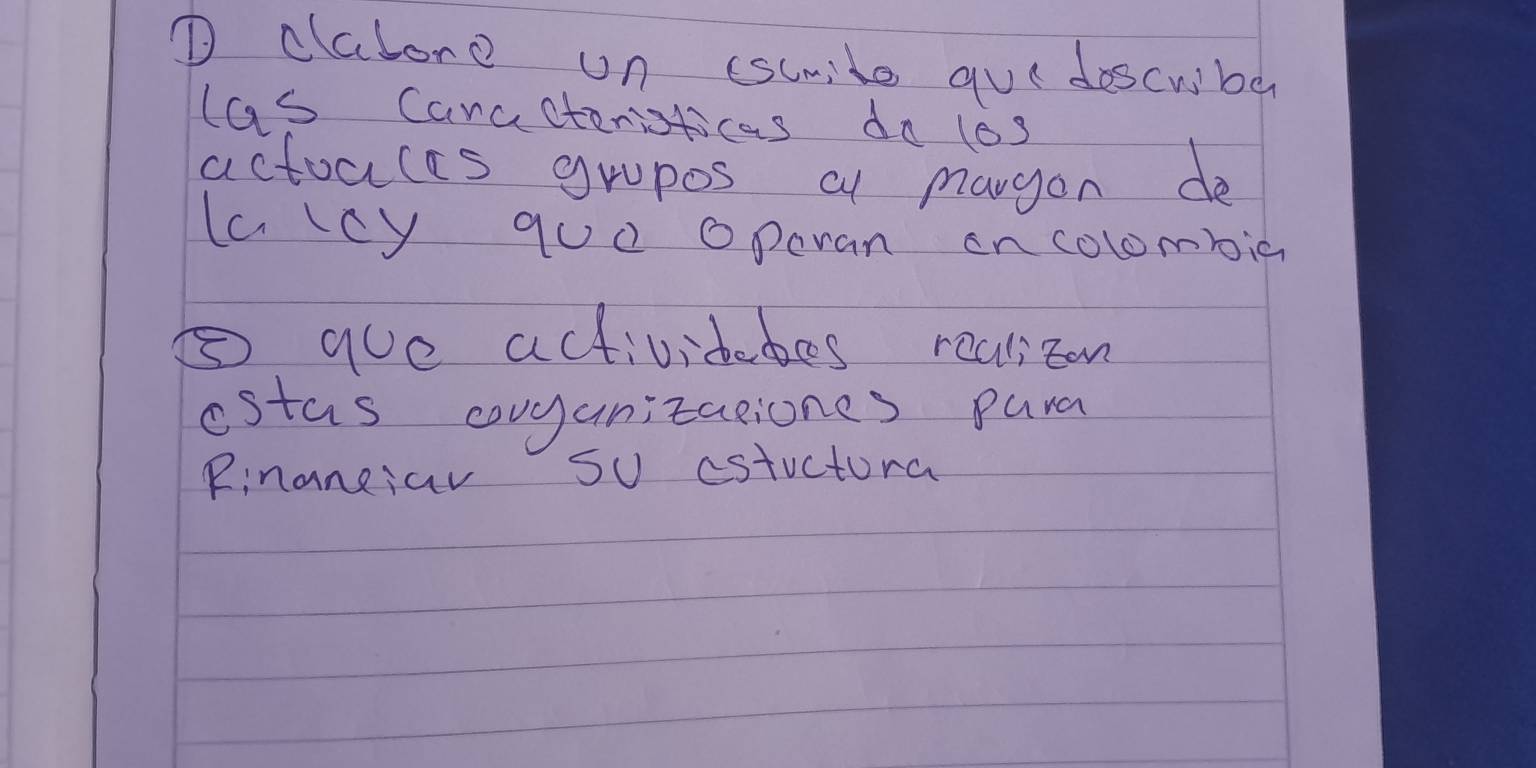 ① elabore un escrito que describa
las caracteristicas de los
actuales grupos al margen de
la ley que operan en colombia
③ que actividades realizan
estas organizaciones para
Financiar su estuctura